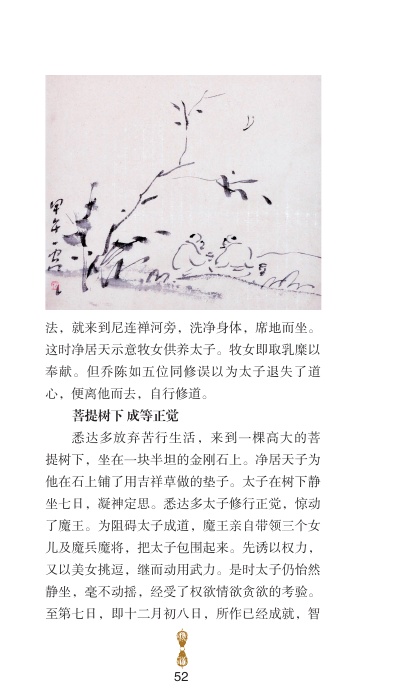 甲午
法，就来到尼连禅河旁，洗净身体，席地而坐。
这时净居天示意牧女供养太子。牧女即取乳糜以
奉献。但乔陈如五位同修误以为太子退失了道
心，便离他而去，自行修道。
菩提树下 成等正觉
悉达多放弃苦行生活，来到一棵高大的菩
提树下，坐在一块半坦的金刚石上。净居天子为
他在石上铺了用吉祥草做的垫子。太子在树下静
坐七日，凝神定思。悉达多太子修行正觉，惊动
了魔王。为阻碍太子成道，魔王亲自带领三个女
儿及魔兵魔将，把太子包围起来。先诱以权力，
又以美女挑逗，继而动用武力。是时太子仍怡然
静坐，毫不动摇，经受了权欲情欲贪欲的考验。
至第七日，即十二月初八日，所作已经成就，智
52